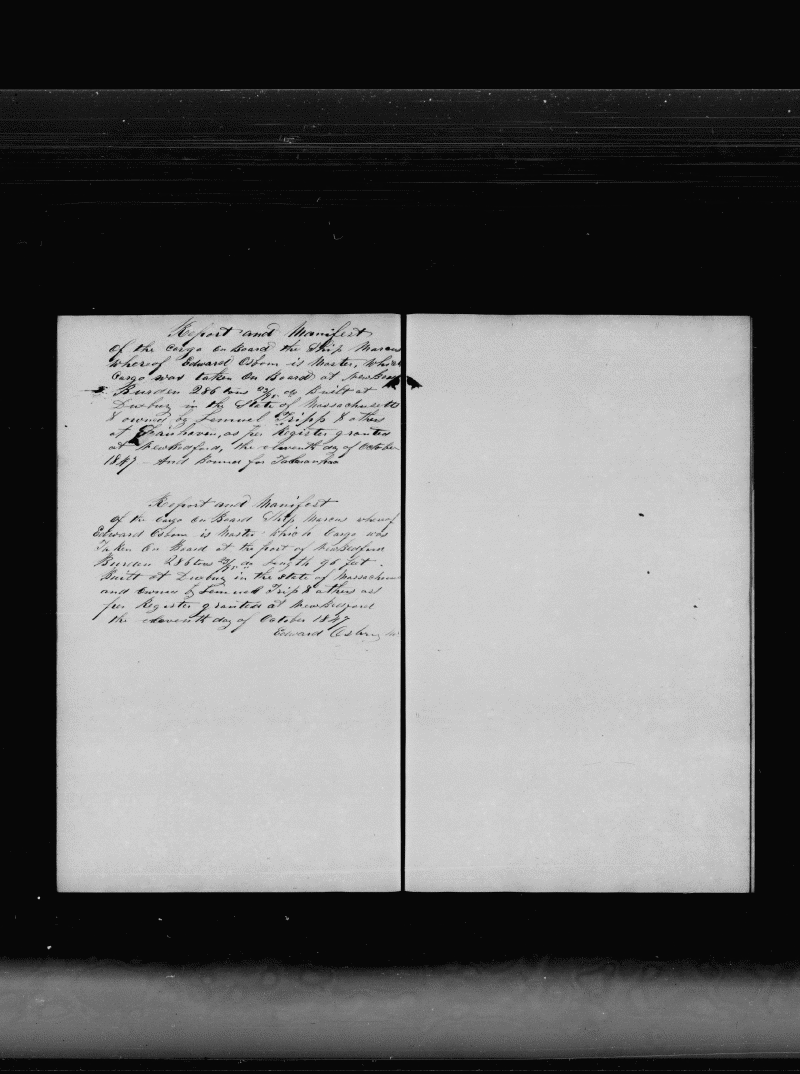 Report and Manifest
Of the Cargo on Board the Ship Marcus
Whereof Edward Osborn is Master, Which
Cargo was taken On Board at New Bed
Burden 286 tons /95 ds Built at
Duxbury in the State of Massachusetts
& owned by Lemuel Tripp & others
at Fairhaven, as per Register granted
at New Bedford, the eleventh day of October
1847 And Bound for
Report and Manifest
Of the Cargo on Board Ship Marcus whereof
Edward Osborn is Master which Cargo was
Taken On Board at the port of New Bedford
Burden 286 tons /95 ds length 96 feet
Built at Duxbury in the State of Massachus
and owned by Lemuel Trip & others as
per Register granted at New Bedford
the eleventh day of October 1847
Edward Osborn